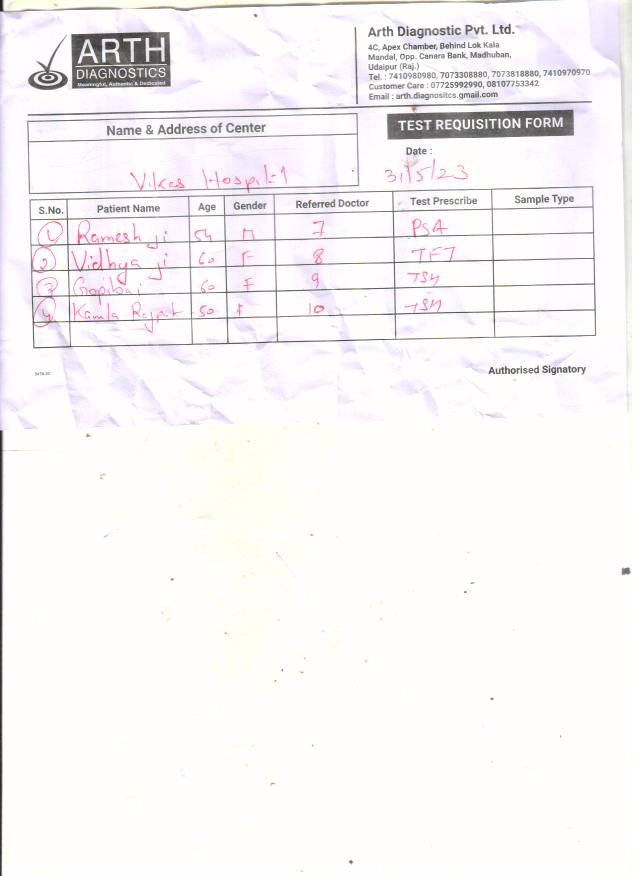 ARTH
DIAGNOSTICS
Meaningful, Authentic & Dedicated
Arth Diagnostic Pvt. Ltd.
4C, Apex Chamber, Behind Lok Kala
Mandal, Opp. Canara Bank, Madhuban,
Udaipur (Raj.)
Tel. : 7410980980, 7073308880, 7073818880, 7410970970
Customer Care : 07725992990, 08107753342
Email : arth.diagnositcs.gmail.com
Name & Address of Center
TEST REQUISITION FORM
Date :
Vikas Hospital
31/5/23
S.No. Patient Name Age Gender Referred Doctor Test Prescribe Sample Type
1 Ramesh ji 54 M 7 PSA
2 Vidhya ji 60 F 8 TFT
3 Gopibai 60 F 9 TSH
4 Kamla Rajput 50 F 10 TSH
Authorised Signatory